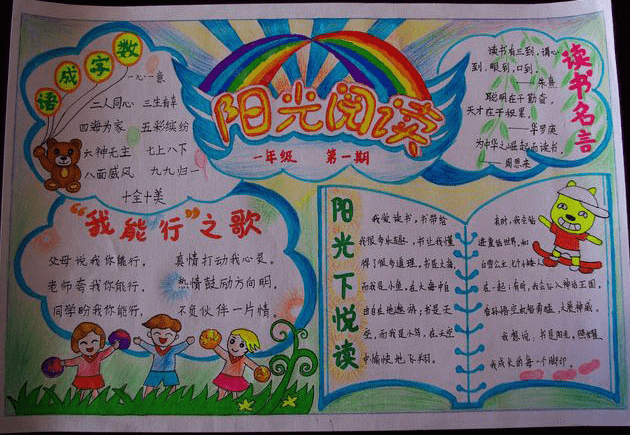 数字成语
一心一意
二人同心 三生有幸
四海为家 五彩缤纷
六神无主 七上八下
八面威风 九九归一
十全十美
阳光阅读
一年级 第一期
读书名言
读书有三到,谓心
到,眼到,口到。
——朱熹
聪明在于勤奋,
天才在于积累。
——华罗庚
为中华之崛起而读书。
——周恩来
“我能行”之歌
父母说我你能行,
老师夸我你能行,
同学盼我你能行,
真情打动我心灵。
热情鼓励方向明,
不负伙伴一片情。
阳光下悦读
我爱读书,书带给
我很多乐趣,书让我懂
得了很多道理。书是大海,
而我是小鱼,在大海中自
由自在地遨游;书是天
空,而我是小鸟,在天空
中愉快地飞翔。
有时,我会钻
进童话世界,和
白雪公主、七个小矮人
在一起;有时,我会闯入神话王国,
看孙悟空
我想说,书是阳光,照耀
我成长的每一个脚印。